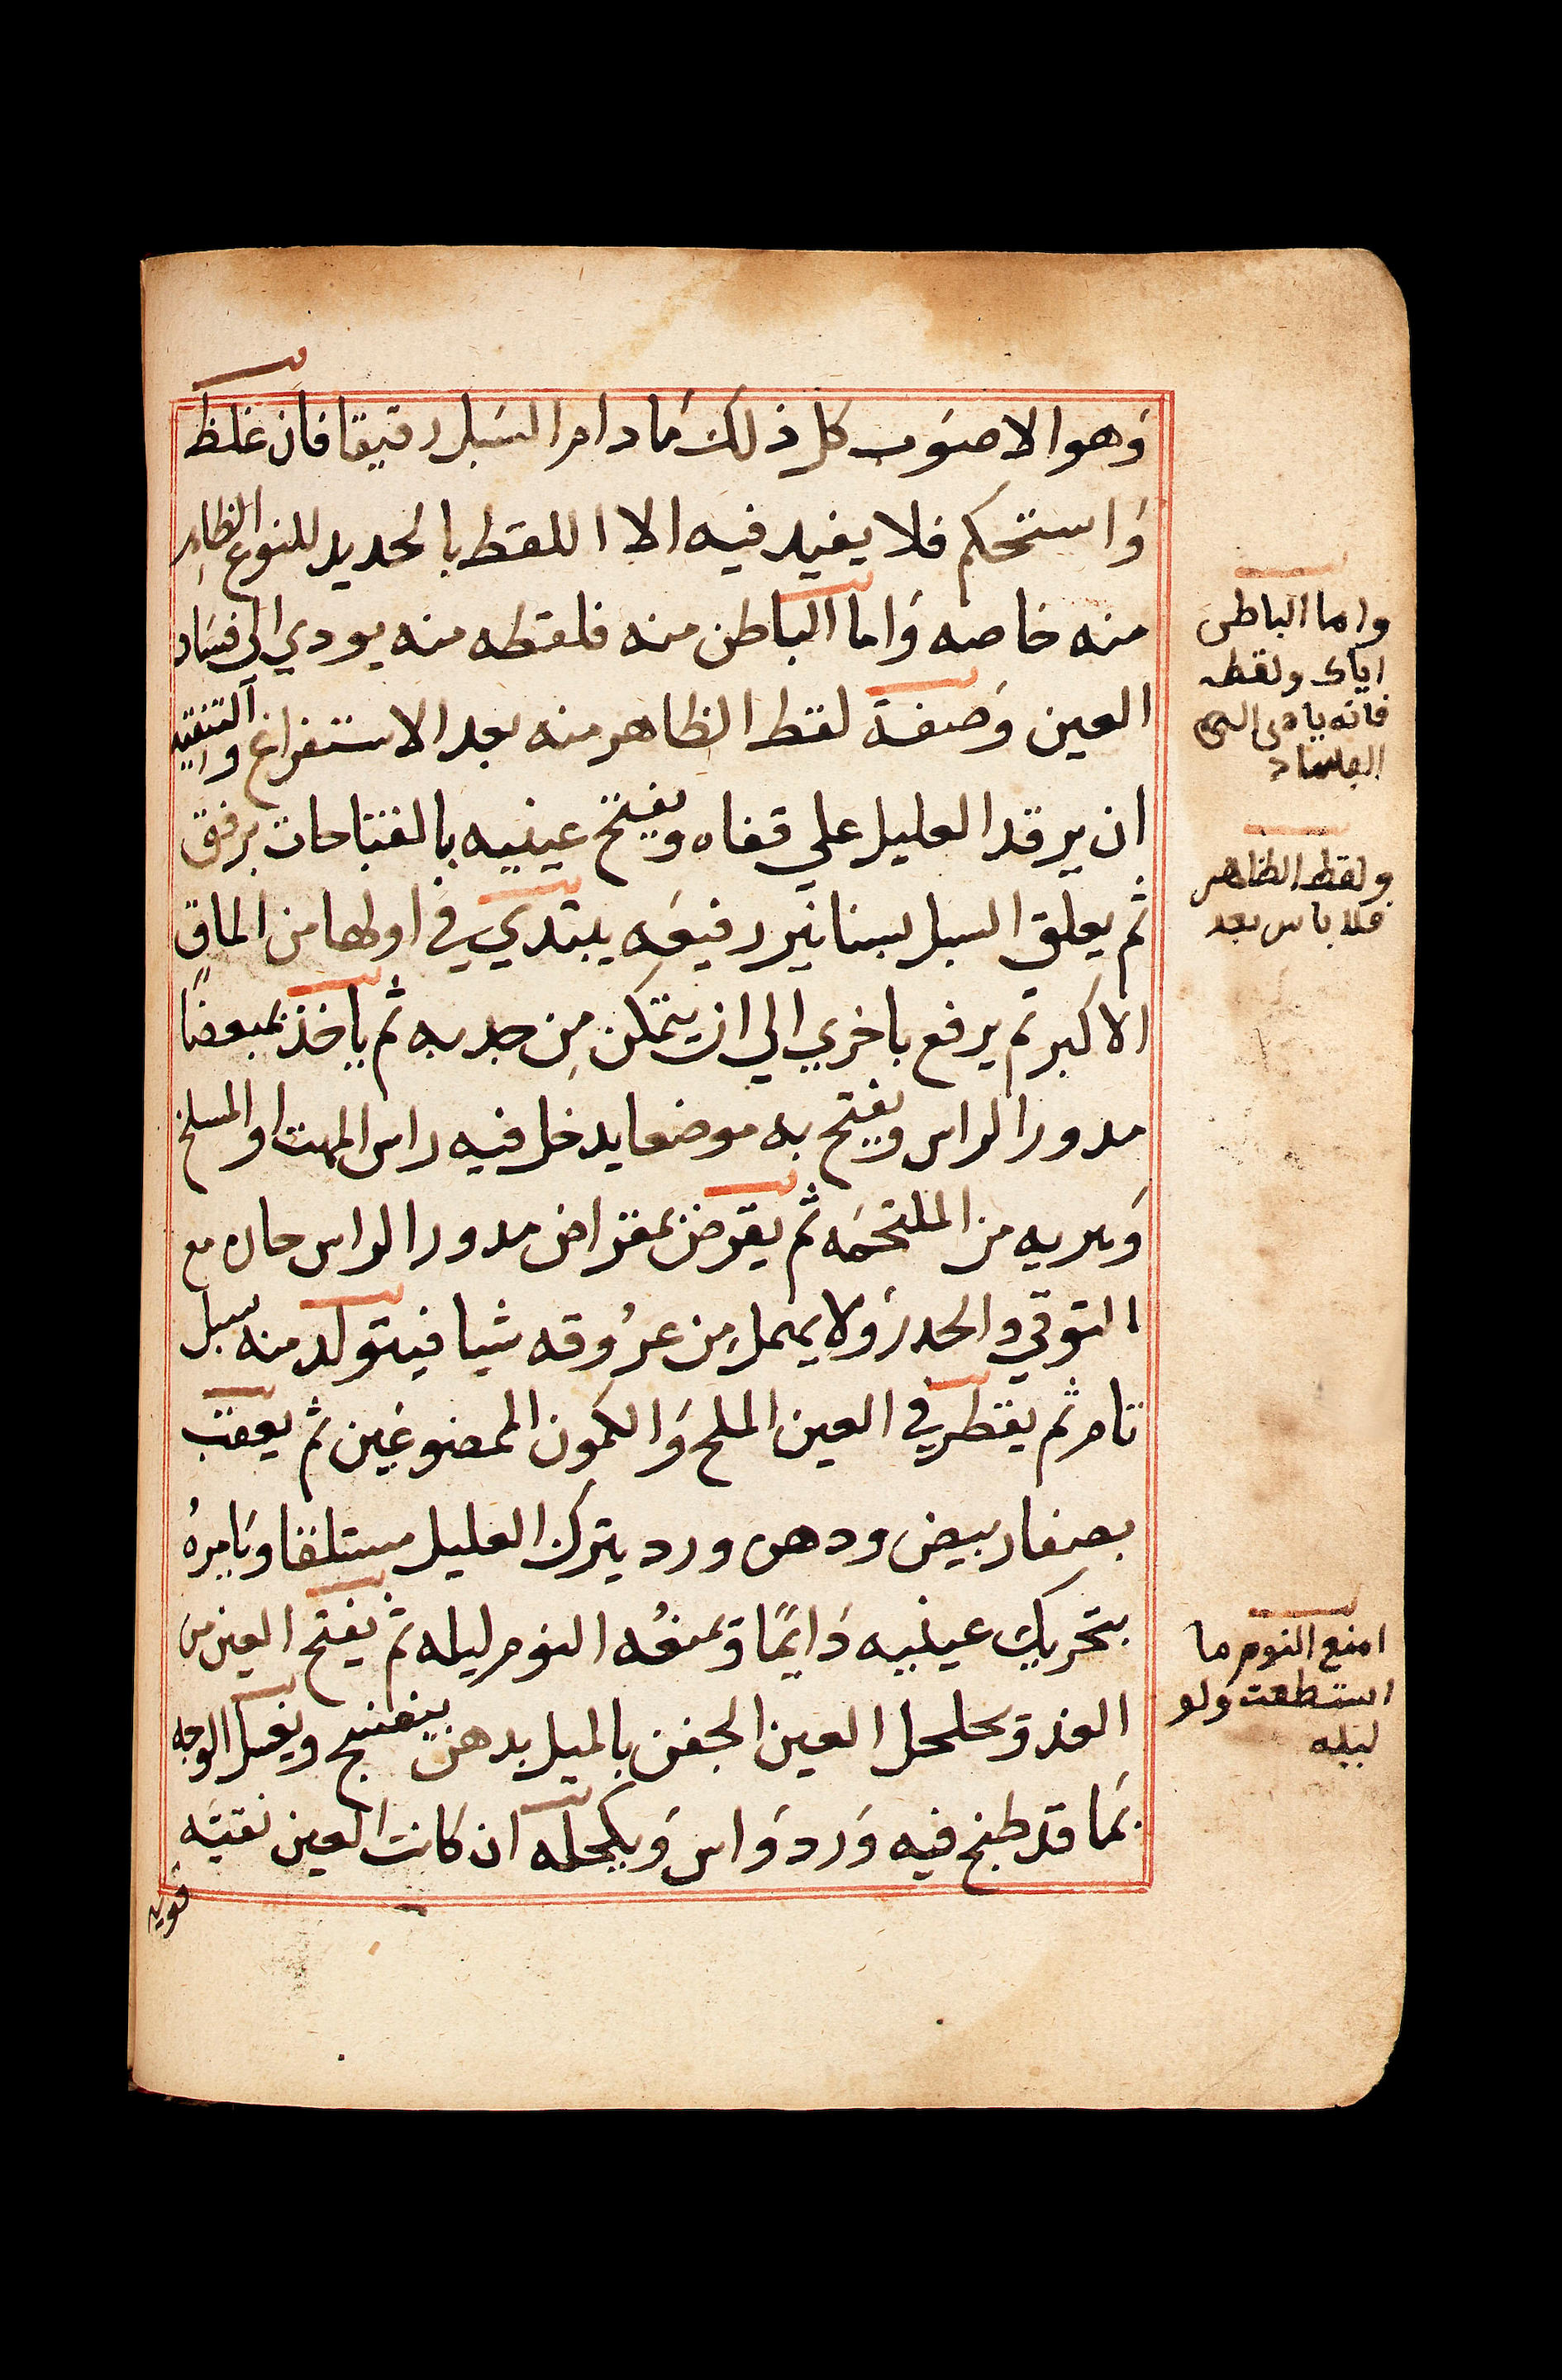 وَهو الاصوَب كل ذلك مَا دام السَبل رقيقا فان غلظ
وَاستحكم فلا يفيد فيه الا اللقط بالحديد للنوع الظاهر
منه خاصه وَاما الباطن منه فلقطه منه يودي الي فسَاد
العين وَصفة لقط الظاهر منه بعد الاستفراغ والتنقيه
ان يرقد العليل علي قفاه ويفتح عينيه بالفتاحات برفق
ثم يعلق السبل بسنانير رفيعَه يبتدي في اولها من الماق
الاكبر ثم يرفع باخري الي ان يتمكن مِن جدبه ثم ياخذ بمبعضًا
مدور الراس ويفتح به موضعا يدخل فيه راس المهت او المسلخ
وَيبريه من الملتحمَه ثم يقرض بمقراض مدور الراس حاد مع
التوقي والحدر وَلا يهمل مِن عرُوقه شيا فيتولد منه سبل
تام ثم يقطر في العين الملح وَالكمون الممضوغين ثم يعقب
بصفار بيض ودهن ورد يترك العليل مستلقا ويَامرهُ
بتحريك عينيه دَايمًا وَيمنعُه النوم ليله ثم يفتح العين من
الغد وَيحلحل العين الجفن بالميل بدهن بنفسج ويغسل الوجه
بمَا قد طبخ فيه وَرد وَاس وَيكحله ان كانت العين نقيَه
قويه
واما الباطن
اياك ولقطه
فانه يادي الي
الفساد
ولقط الظاهر
فلا باس بعد
امنع النوم ما
استطعت ولو
ليله